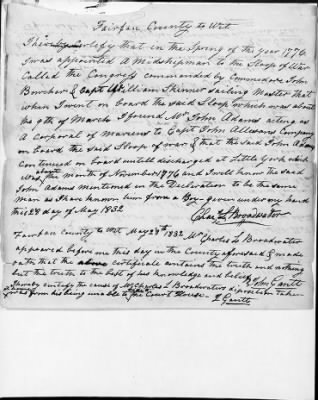 Fairfax County to Wit
I hereby Certify that in the Spring of the year 1776
I was appointed a Midshipman to the Sloop of War
Called the Congress commanded by Commodore John
& Capt William Skinner sailing Master that
when I went on board the said Sloop which was about
the 9th of March I found Mr John Adams acting as
a Corporal of mareens to Capt John Allisons Company
on board the said Sloop of war & that the said John Adams
continued on board untill discharged at Little York which
Was about the month of November 1776 and I well know the said
John Adams mentioned in the Declaration to be the same
man as I have known him from a Boy given under my hand
this 28 day of May 1832
Chas L Broadwater
Fairfax County to Wit May 28th 1832 Mr Charles L Broadwater
appeared before me this day in the County aforesaid & made
oath that the above certificate contains the truth and nothing
but the truth to the best of his knowledge and belief John Gantt
I hereby certify the cause of Mr Charles L Broadwaters deposition taken
was from his being unable to the Court House - J Gantt